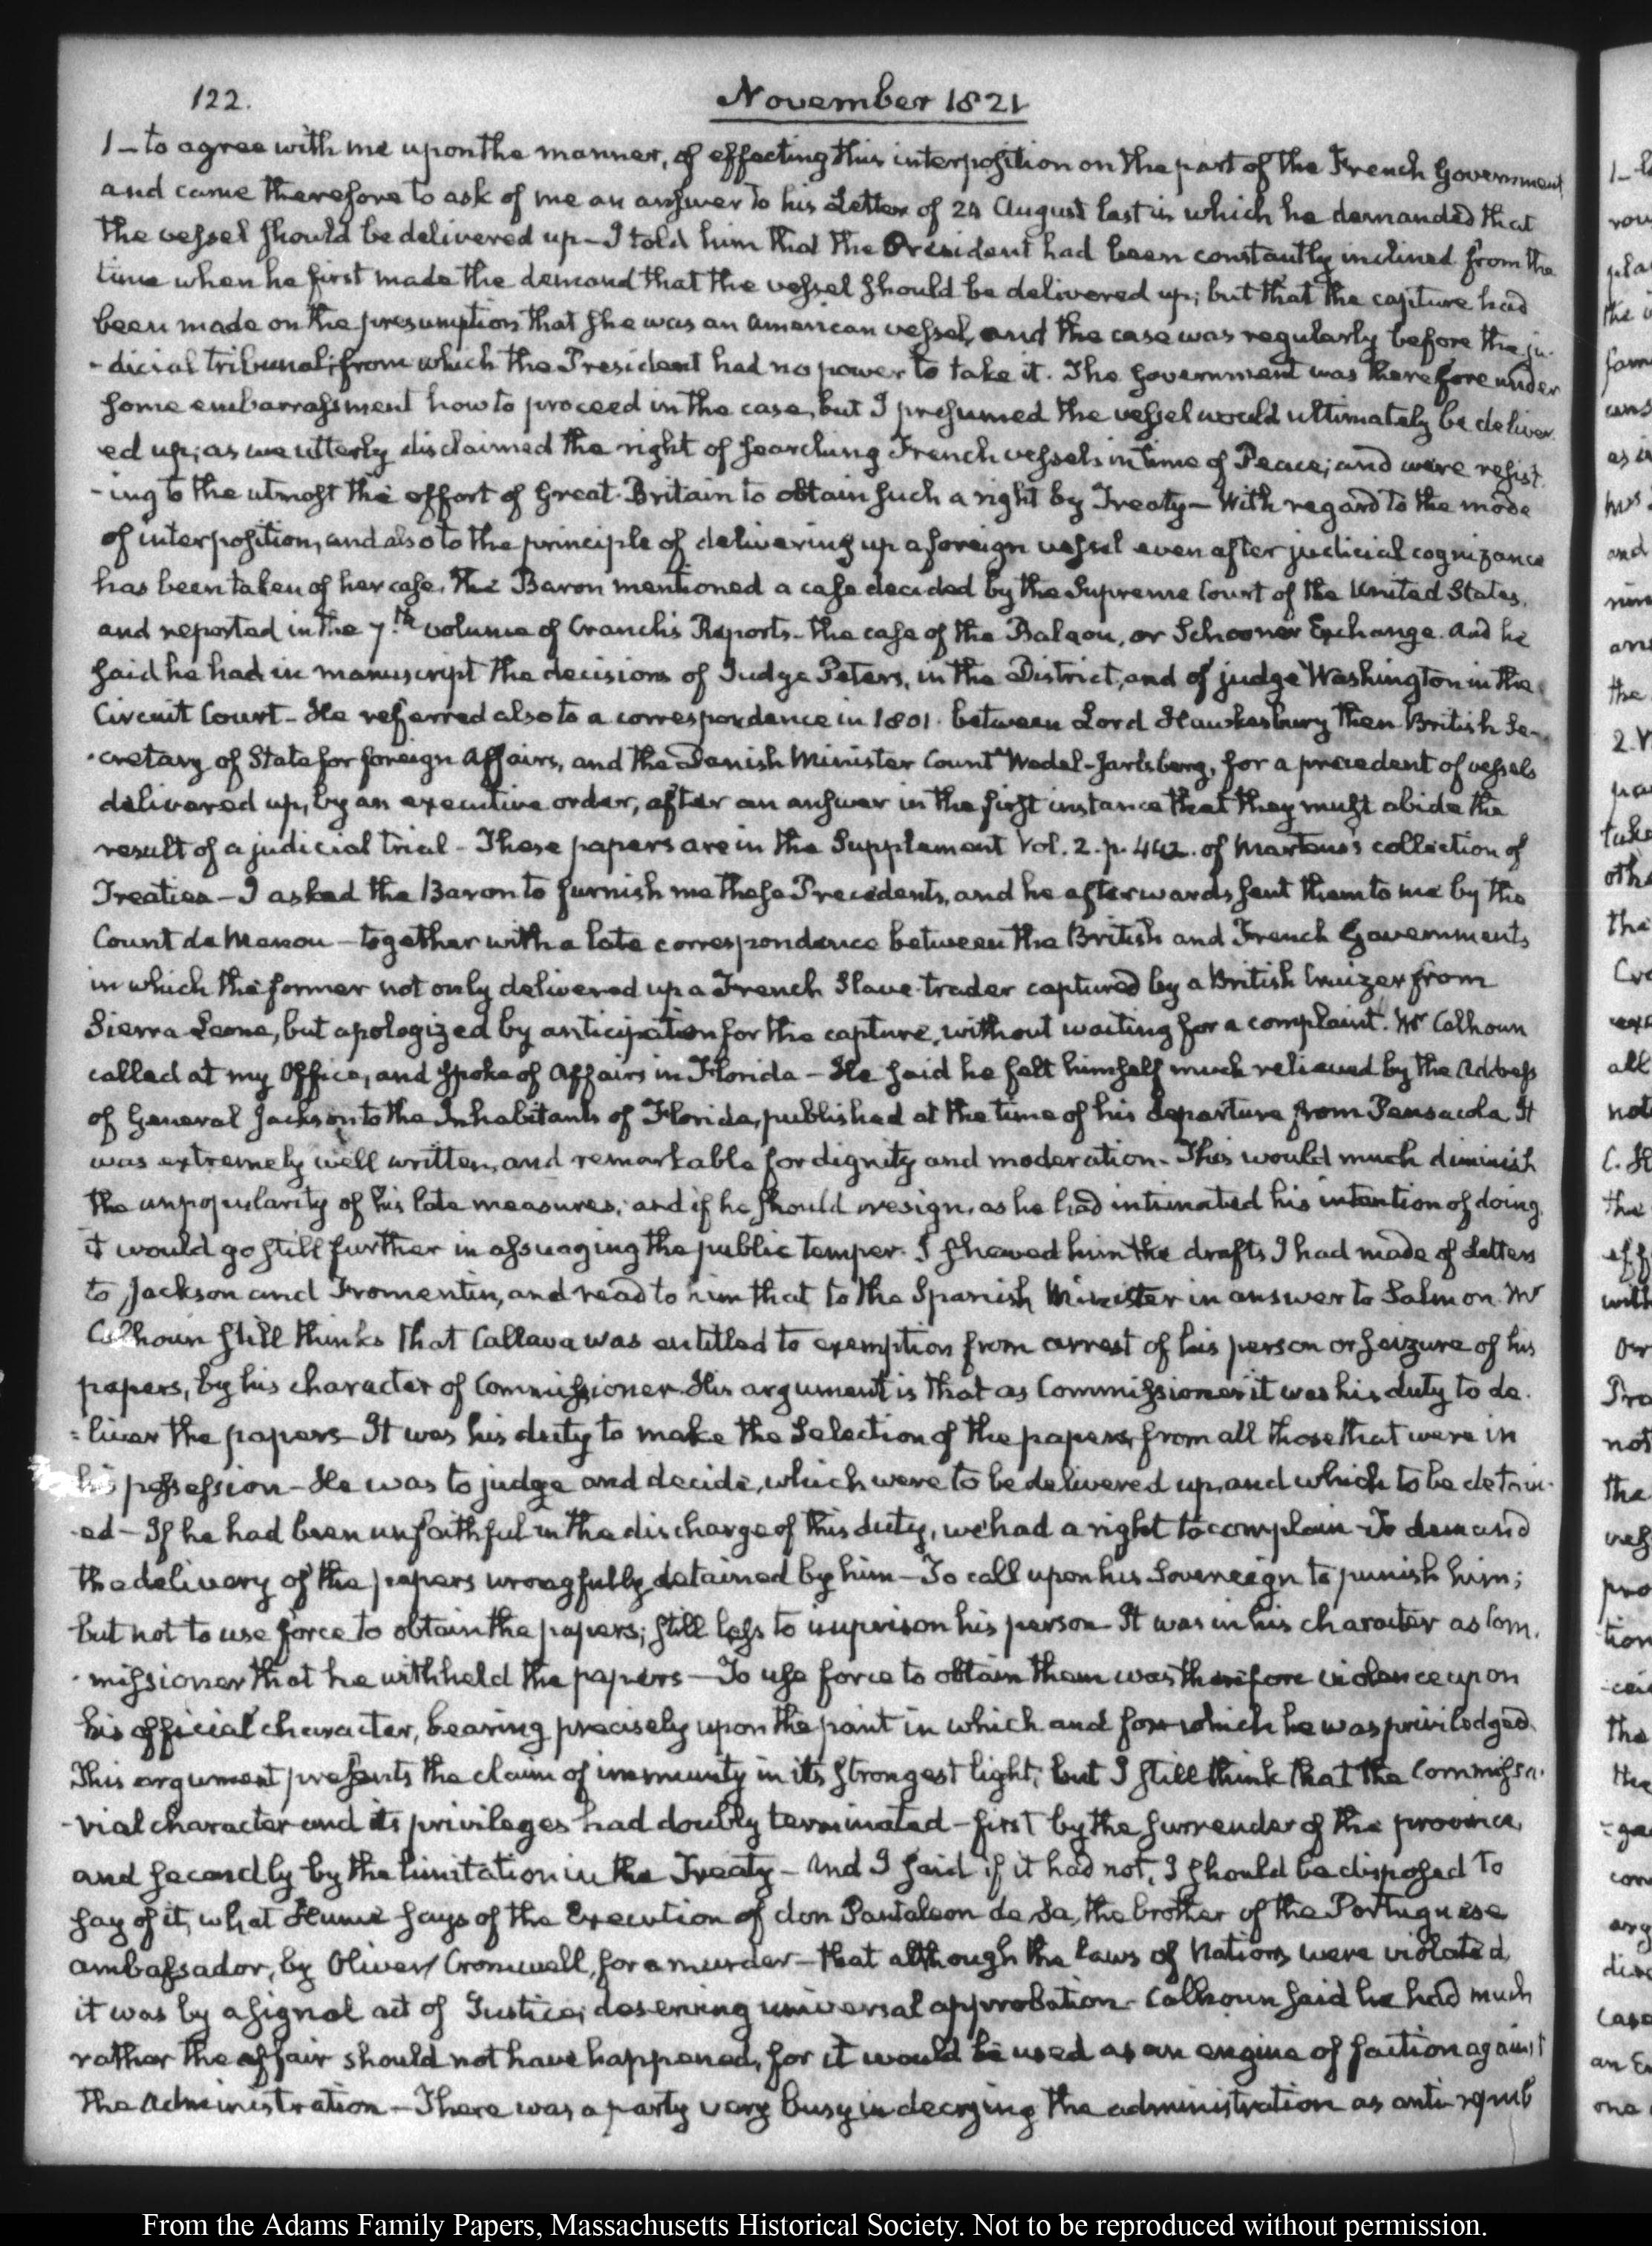 122.
November 1821
1 – to agree with me upon the manner, of effecting this interposition on the part of the French Government
and came therefore to ask of me an answer to his Letter of 24 August last in which he demanded that
the vessel should be delivered up – I told him that the President had been constantly inclined from the
time when he first made the demand that the vessel should be delivered up; but that the capture had
been made on the presumption that she was an American vessel, and the case was regularly before the ju-
-dicial tribunal; from which the President had no power to take it. The Government was therefore under
some embarrassment how to proceed in the case, but I presumed the vessel would ultimately be deliver-
ed up; as we utterly disclaimed the right of searching French vessels in time of Peace; and were resist-
-ing to the utmost the effort of Great-Britain to obtain such a right by Treaty – With regard to the mode
of interposition, and also to the principle of delivering up a foreign vessel even after judicial cognizance
has been taken of her case, the Baron mentioned a case decided by the Supreme Court of the United States,
and reported in the 7.th volume of Cranch's Reports – the case of the Balaou, or Schooner Exchange. And he
said he had in manuscript the decisions of Judge Peters, in the District, and of judge Washington in the
Circuit Court – He referred also to a correspondence in 1801. between Lord Hawkesbury then British Se-
-cretary of State for foreign Affairs, and the Danish Minister Count Wedel-Jarlsberg, for a precedent of vessels
delivered up, by an executive order, after an answer in the first instance that they must abide the
result of a judicial trial – These papers are in the Supplement Vol. 2. p. 442. of Martens's collection of
Treaties – I asked the Baron to furnish me these Precedents, and he afterwards sent them to me by the
Count de Menou – together with a late correspondence between the British and French Governments
in which the former not only delivered up a French Slave-trader captured by a British Cruizer from
Sierra Leone, but apologized by anticipation for the capture, without waiting for a complaint. Mr Calhoun
called at my Office, and spoke of Affairs in Florida – He said he felt himself much relieved by the Address
of General Jackson to the Inhabitants of Florida, published at the time of his departure from Pensacola. It
was extremely well written, and remarkable for dignity and moderation – This would much diminish
the unpopularity of his late measures; and if he should resign, as he had intimated his intention of doing,
it would go still further in assuaging the public temper. I shewed him the drafts I had made of Letters
to Jackson and Fromentin, and read to him that to the Spanish Minister in answer to Salmon. Mr
Calhoun still thinks that Callava was entitled to exemption from arrest of his person or seizure of his
papers, by his character of Commissioner. His argument is that as Commissioner it was his duty to de-
=liver the papers – It was his duty to make the Selection of the papers, from all those that were in
his possession – He was to judge and decide, which were to be delivered up, and which to be detain-
-ed – If he had been unfaithful in the discharge of this duty, we had a right to complain – To demand
the delivery of the papers wrongfully detained by him – To call upon his Sovereign to punish him;
but not to use force to obtain the papers; still less to imprison his person – It was in his character as Com-
-missioner that he withheld the papers – To use force to obtain them was therefore violence upon
his official character, bearing precisely upon the point in which and for which he was priviledged.
This argument presents the claim of immunity in its strongest light; but I still think that the Commissa-
-rial character and its privileges had doubly terminated – first by the surrender of the province,
and secondly by the limitation in the Treaty – And I said if it had not, I should be disposed to
say of it, what Hume says of the Execution of don Pantaleon de Sa, the brother of the Portuguese
ambassador, by Oliver Cromwell, for a murder – that although the laws of Nations were violated,
it was by a signal act of Justice, deserving universal approbation – Calhoun said he had much
rather the affair should not have happened, for it would be used as an engine of faction against
the Administration – There was a party very busy in decrying the administration as anti-repub
From the Adams Family Papers, Massachusetts Historical Society. Not to be reproduced without permission.